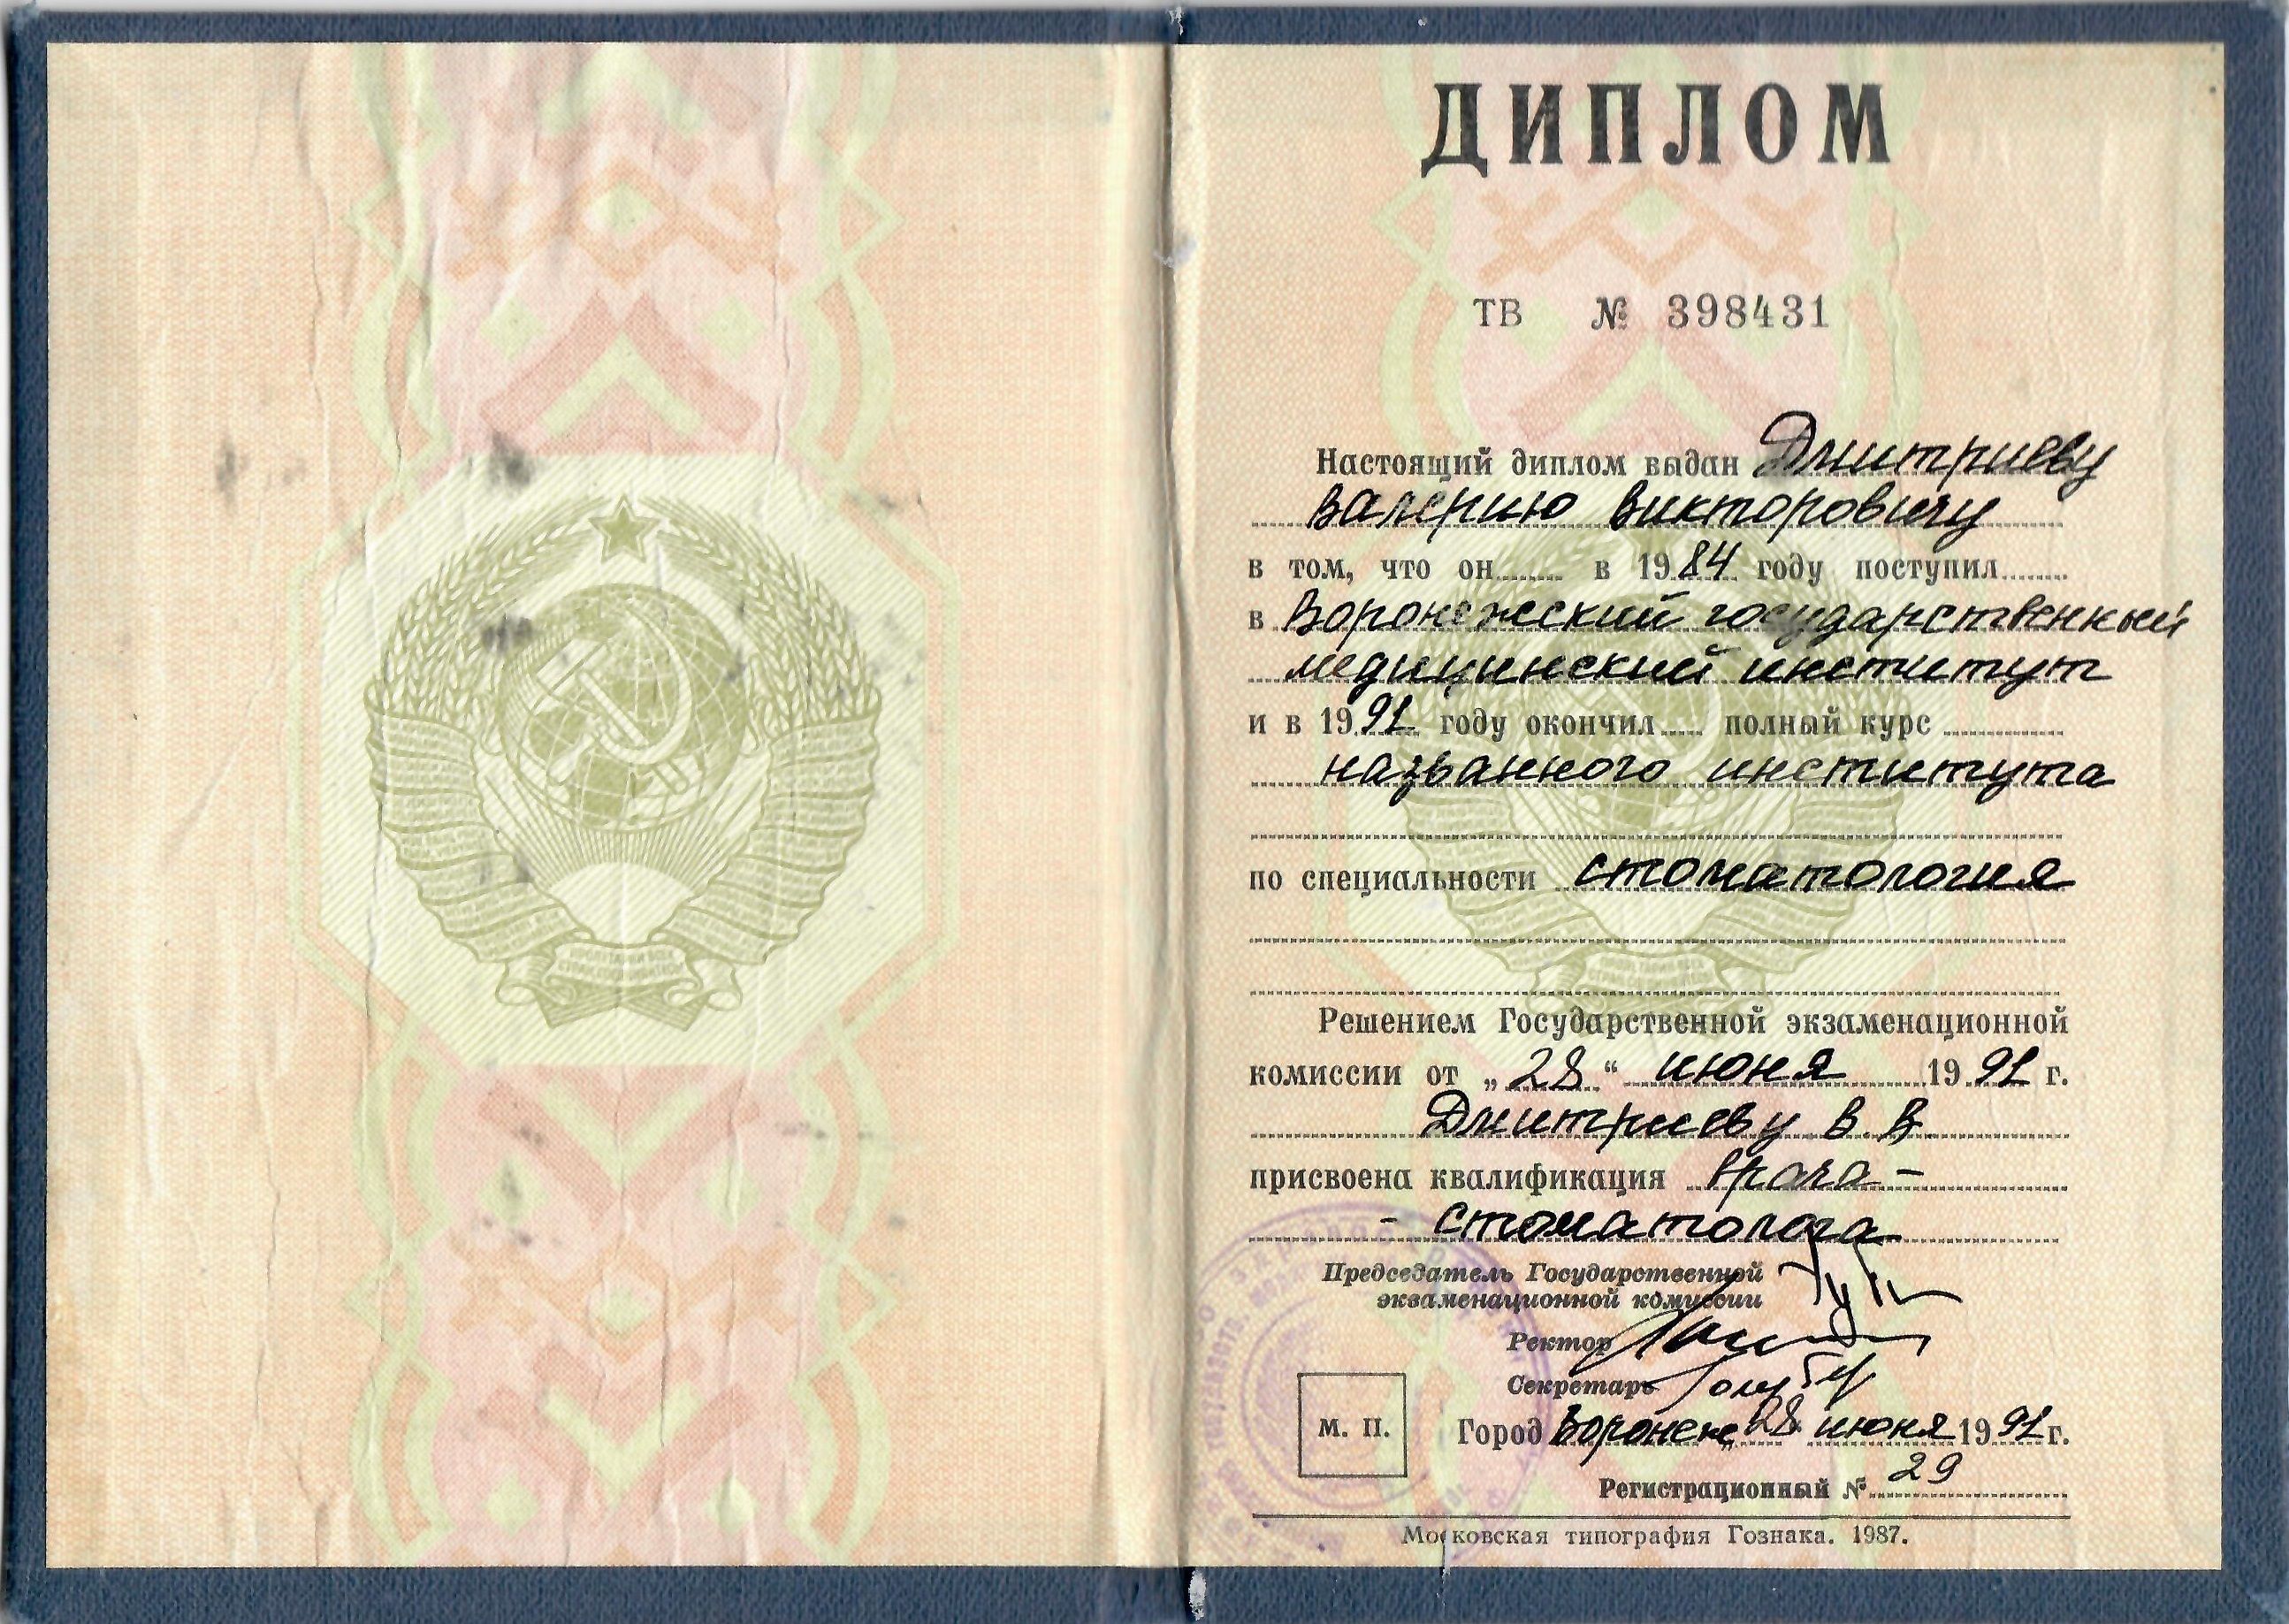 ДИПЛОМ
ТВ № 398431
Настоящий диплом выдан Дмитриеву
Валерию Викторовичу
в том, что он в 1984 году поступил
в Воронежский государственный
медицинский институт
и в 1991 году окончил полный курс
названного института
по специальности стоматология
Решением Государственной экзаменационной
комиссии от „28“ июня 1991 г.
Дмитриеву В. В.
присвоена квалификация врача-
- стоматолога
Председатель Государственной
экзаменационной комиссии
Ректор
Секретарь
М. П.
Город Воронеж 28 июня 1991 г.
Регистрационный № 29
Московская типография Гознака. 1987.